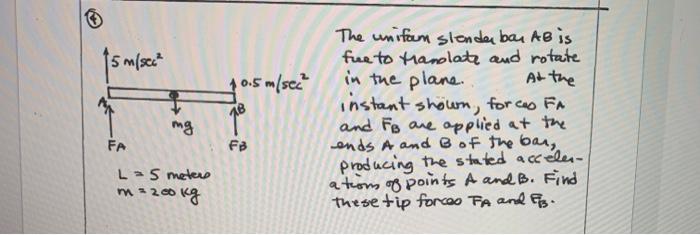 4
The uniform slender bar AB is
free to translate and rotate
in the plane. At the
instant shown, forces FA
and FB are applied at the
ends A and B of the bar,
producing the stated acceler-
ations of points A and B. Find
these tip forces FA and FB.
5 m/sec²
0.5 m/sec²
A
B
mg
FA
FB
L = 5 meters
m = 200 kg